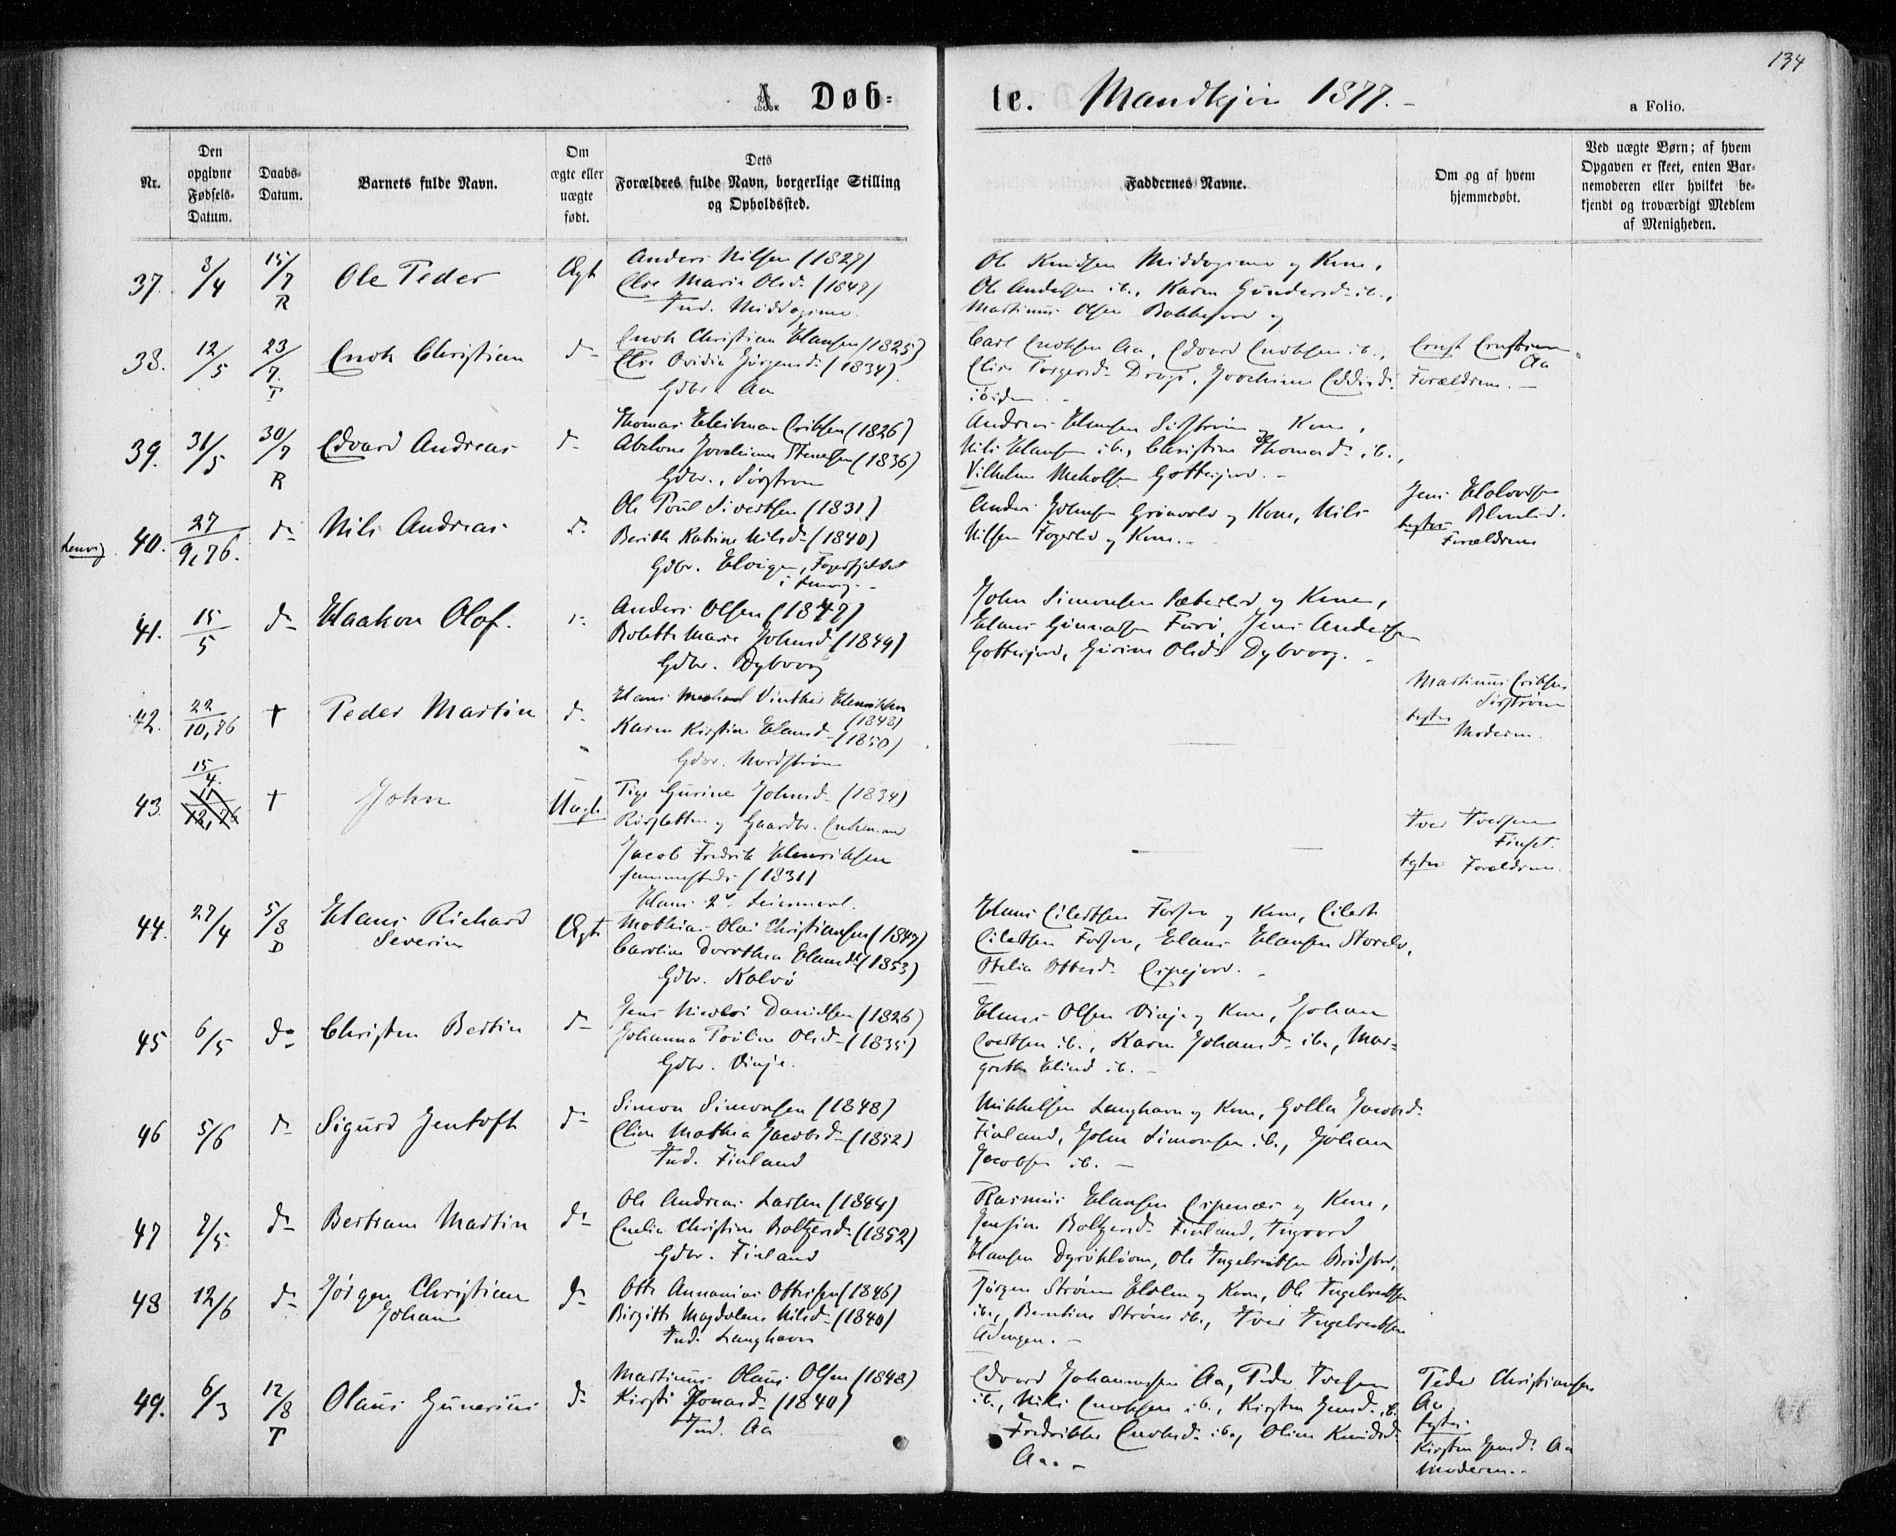 134
A. Døb-
te. Mandkjøn 1877.-
a Folio.
Nr.
Den opgivne Fødsels-Datum.
Daabs-Datum.
Barnets fulde Navn.
Om ægte eller uægte født.
Dets Forældres fulde Navn, borgerlige Stilling og Opholdssted.
Faddernes Navne.
Om og af hvem hjemmedøbt.
Ved uægte Børn; af hvem Opgaven er skeet, enten Barnemoderen eller hvilket bekjendt og troværdigt Medlem af Menigheden.
37. 8/4 15/7 R Ole Peder Ægt
Anders Nilsen (1827)
Else Marie Olsd. (1848)
Ind. Middagsnes.
Ole Knudsen Middagsnes og Kone,
Ole Andersen ib., Karen Gundersd. ib.,
Martinus Olsen Bakkejord og
38. 12/5 23/7 T Enok Christian do
Enok Christian Hansen (1825)
Else Ovidia Jørgensd. (1834)
Gdbr. Aa
Carl Enoksen Aa, Edvard Enoksen ib.,
Elise Torgersd. Drage, Joachime Eddisd.
ibidem.
Ernst Ernstsen
Aa
Forældrene. -
39. 31/5 30/7 R Edvard Andreas do
Thomas Heitman Eriksen (1826)
Abelone Joakima Stenersen (1836)
Gdbr., Sørstrøm
Andreas Hansen Sørstrøm og Kone,
Nils Hansen ib., Christine Thomasd. ib.,
Vilhelm Mekelsen Gottesjord. -
Lenvig. 40. 27/9,76. do Nils Andreas do
Ole Poul Sivertsen (1831)
Berith Katrine Nilsd. (1840)
Gdbr. Elvigen, Fagerfjeldet
i Lenvig. -
Anders Johnsen Grønord og Kone, Nils
Nilsen Fagerli og Kone. -
Jens Olovsen
Blomli.
Forældrene
41. 15/5 do Haakon Olof.
Anders Olsen (1847)
Bolette Marie Johnsd. (1849)
Gdbr. Dybvaag
John Simonsen Sæterli og Kone,
Hans Gunnarsen Furø, Jens Andersen
Gottesjord, Gurine Olsd. Dybvaag. -
42. 22/10,76 † Peder Martin do
Hans Mikael Vinther Henriksen (1848)
Karen Kirstine Hansd. (1850)
Gdbr. Nordstrøm
Martinus Eriksen
Sørstrøm
Moderen.
43. 15/4. † John Uægte
Pige Gurine Johnsd. (1834)
Rørsletten og Gaardbr. Enkemand
Jacob Fredrik Henriksen
sammesteds (1831)
Hans 2det Leiermaal.
Iver Iversen
Finset.
Forældrene.
44. 27/4 5/8 D Hans Richard
Severin Ægte
Mathias Olai Christiansen (1847)
Caroline Dorothea Hansd. (1853)
Gdbr. Kalvø
Hans Eilertsen Forsøen og Kone, Eilert
Eilertsen Forsøen, Hans Hansen Storelv,
Otelia Ottesd. Espejord. -
45 6/5 do Christen Bertin do
Jens Nicolai Danielsen (1826)
Johanna Pouline Olsd. (1835)
Gdbr. Vinje.
Hans Olsen Vinje og Kone, Johan
Evertsen ib., Karen Johansd. ib., Mar-
grethe Elind ib. -
46 5/6 do Sigurd Jentoft do
Simon Simonsen (1848)
Eline Mathea Jacobsd. (1852)
Ind. Finland
Mikkelsen Langhavn og Kone, Golla Jacobsd.
Finland, John Simonsen ib., Johan
Jacobsen ib. -
47 7/5 do Bertram Martin do
Ole Andreas Larsen (1844)
Emelie Christine Boltzersd. (1852)
Gdbr. Finland
Rasmus Hansen Espenæs og Kone,
Jensine Boltzersd. Finland, Ingvard
Hansen Dyrøkloven, Ole Ingebrektsen Brødstad,
48 12/6 do Jørgen Christian
Johan do
Otto Annanias Ottesen (1846)
Birgitte Magdalene Nilsd. (1840)
Ind. Langhavn
Jørgen Strøm Holm og Kone, Ole Ingebrektsen
ib., Berntine Strøm ib., Iver Ingebrektsen
49. 6/3 12/8 T Olaus Gunerius do
Martinus Olaus Olsen (1848)
Kirsti Jonasd. (1840)
Ind. Aa
Edvard Johannessen Aa, Peder Iversen
ib., Nils Enoksen ib., Kirsten Jensd. ib.
Fredrikke Enoksd. ib., Oline Knudsd.
Aa. -
Peder Christiansen
Aa
Kirsten Jensd. Aa
Moderen. -